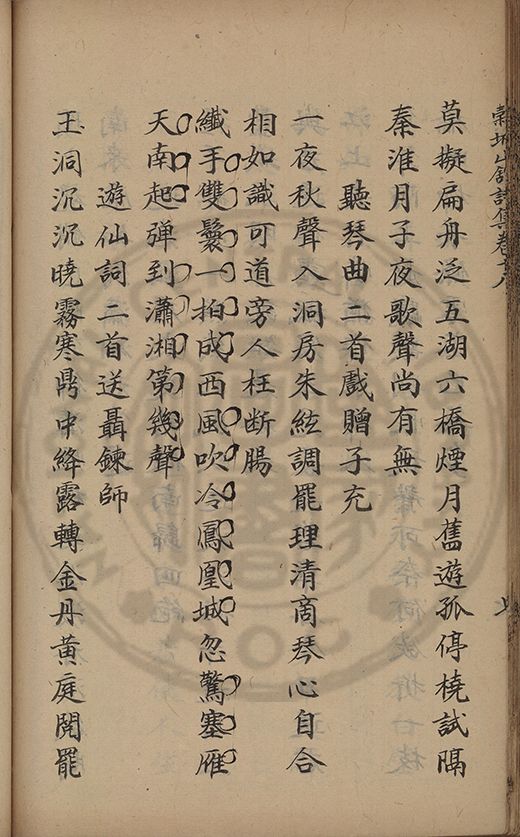 莫擬扁舟泛五湖六橋煙月舊遊孤停橈試隔
秦淮月子夜歌聲尚有無
聽琴曲二首戲贈子充
一夜秋聲入洞房朱絃調罷理清商琴心自合
相如識可道旁人枉断腸
纖手雙鬟一拍成西風吹冷鳳凰城忽驚塞雁
天南起弹到瀟湘第幾聲
遊仙詞二首送聶鍊師
玉洞沉沉曉霧寒鼎中絳露轉金丹黄庭閱罷